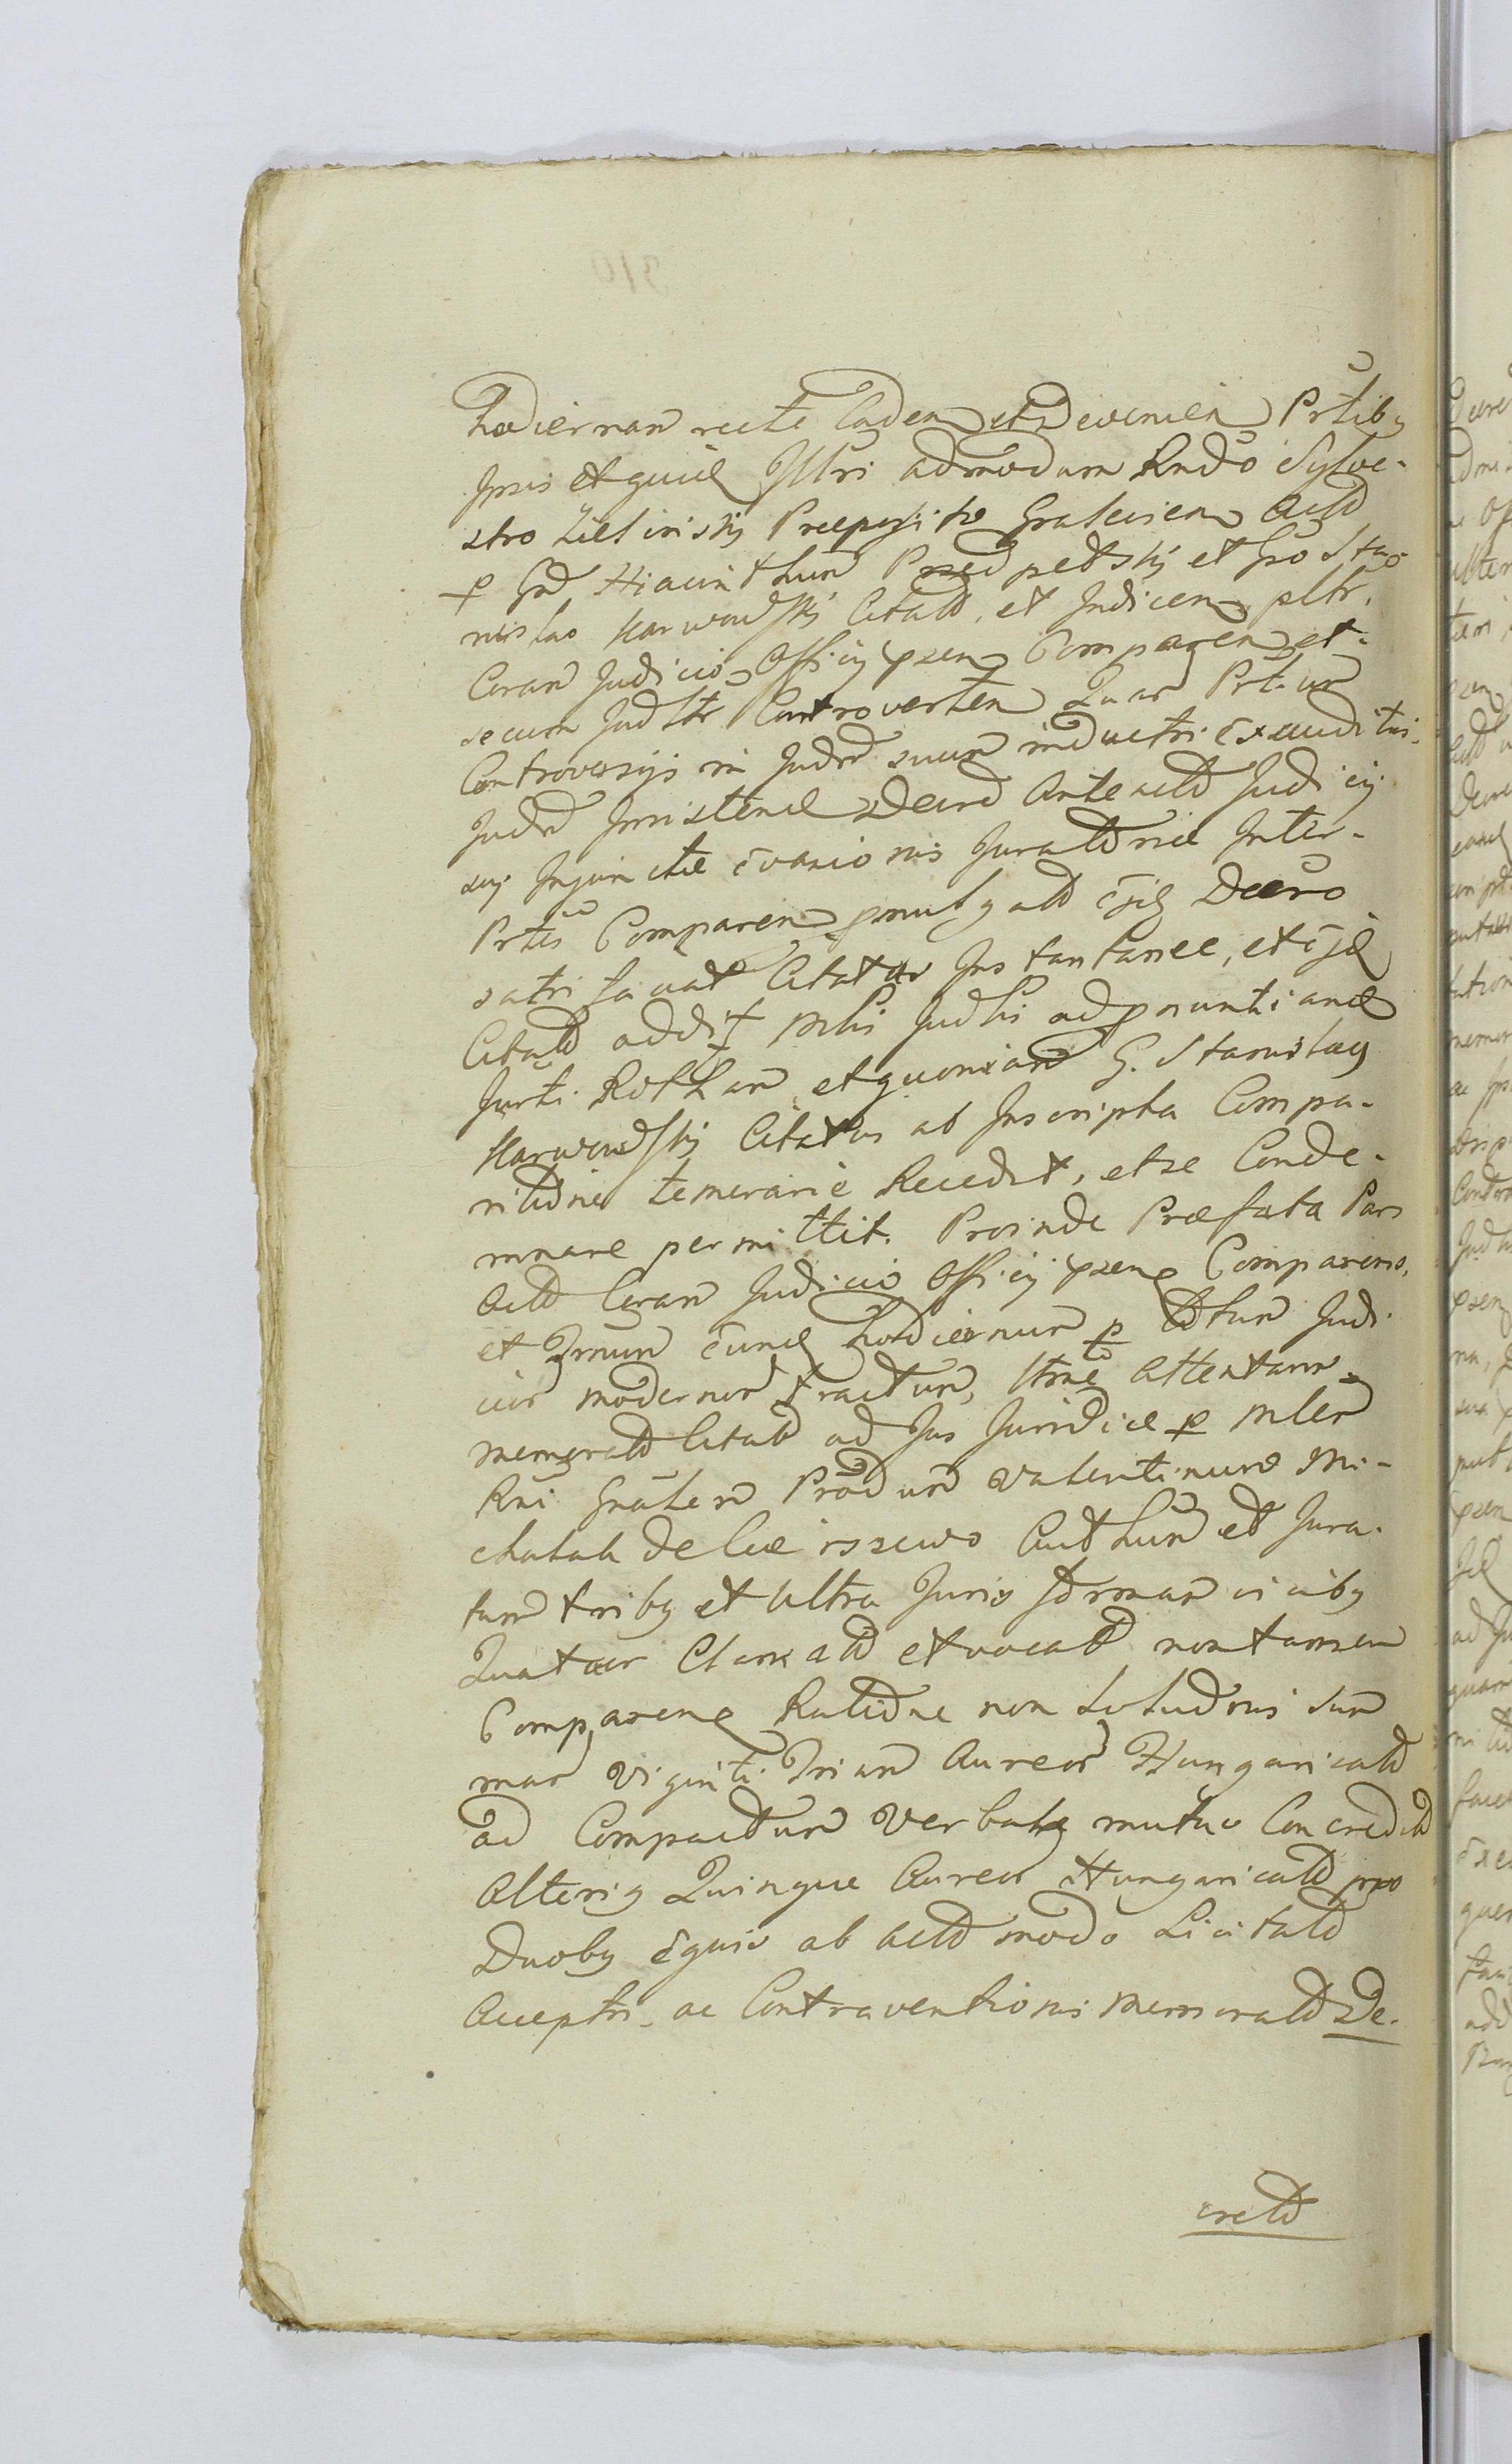 hodiernam recte Caden et Devenien Prtibq
Ipsis et quid Illri admodum Rndo Sylve-
stro Zielinskij Preposito Grateńien Actto
p Gd Hiacinthum Przedpełskij et Gso Sta-
nislao Karwowskij Citato, et Judicen pltr,
Coram Judicio Officij psen Comparen et
secum Judltr Controverten Quar Prtium
Controversijs in Judm suum inductis Exauditis.
Judm Insistend Decrto Anteacto Judicij
sui Injuncte Evasionis Juratorie Inter-
Prtes Comparen pmulgato Ejq Decro
satis faciat Citatus Instantanee, et Ejd
Citato addit Mlis Judlis ad pnuntiand
Jurti Rotham et quoniam G. Stanislaq
Karwowskij Citatus ab Inscripta Compa-
ritione temerarie Recedit, et se Conde-
mnare permittit. Proinde Præfata Pars
Actto Coram Judicio Officij psen Comparens,
et Trmnum Eund hodiernum p totum Judi
cior modernor tractum, ltme Attentans
memorato Citato ad Jus Juridice p Mlem
Rni Gnalem Prœdum Valentinum Mi-
chalak de Cie Authum et Jura-
tum tribq et Ultra Juris formam vicibq
Quatuor Clamato et vocato non tamen
Comparend Ratione non Solutionis Sum
mar Viginti Trium Aureor Hungaricato
ad Compactum Verbale mutuo Concredito
Alteriq Quinque Aureor Hungaricato pro
Duobq Equis ab Actto modo Licitato
Acceptis ac Contraventionis Memorato De-
creto